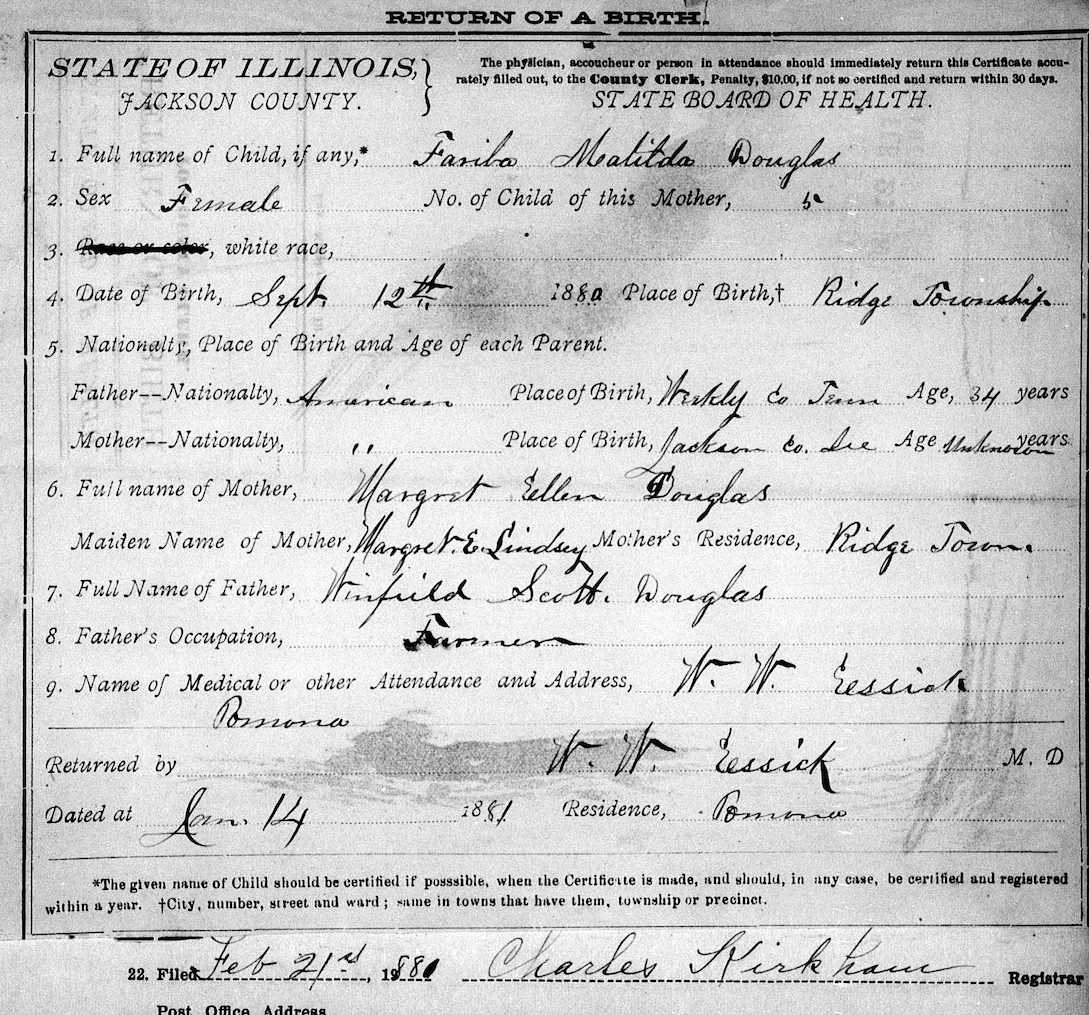 RETURN OF A BIRTH.
STATE OF ILLINOIS,
JACKSON COUNTY.
The physician, accoucheur or person in attendance should immediately return this Certificate accu-
rately filled out, to the County Clerk, Penalty, $10.00, if not so certified and return within 30 days.
STATE BOARD OF HEALTH.
1. Full name of Child, if any,* Fariba Matilda Douglas
2. Sex Female No. of Child of this Mother, 5
3. Race or color, white race,
4. Date of Birth, Sept. 12th 1880 Place of Birth,† Ridge Township
5. Nationalty, Place of Birth and Age of each Parent.
Father--Nationalty, American Place of Birth, Weekly Co Tenn Age, 34 years
Mother--Nationalty, " Place of Birth, Jackson Co. Ill Age Unknown years
6. Full name of Mother, Margret Eellen Douglas
Maiden Name of Mother, Margret. E. Lindsey Mother's Residence, Ridge Town.
7. Full Name of Father, Winfield Scott. Douglas
8. Father's Occupation, Farmer
9. Name of Medical or other Attendance and Address, W. W. Eessick
Pomona
Returned by W. W. Eessick M. D
Dated at Jan. 14 1881 Residence, Pomona
*The given name of Child should be certified if posssible, when the Certificate is made, and should, in any case, be certified and registered
within a year. †City, number, street and ward; same in towns that have them, township or precinct.
22. Filed Feb 21st, 1881 Charles Kirkham Registrar
Post Office Address